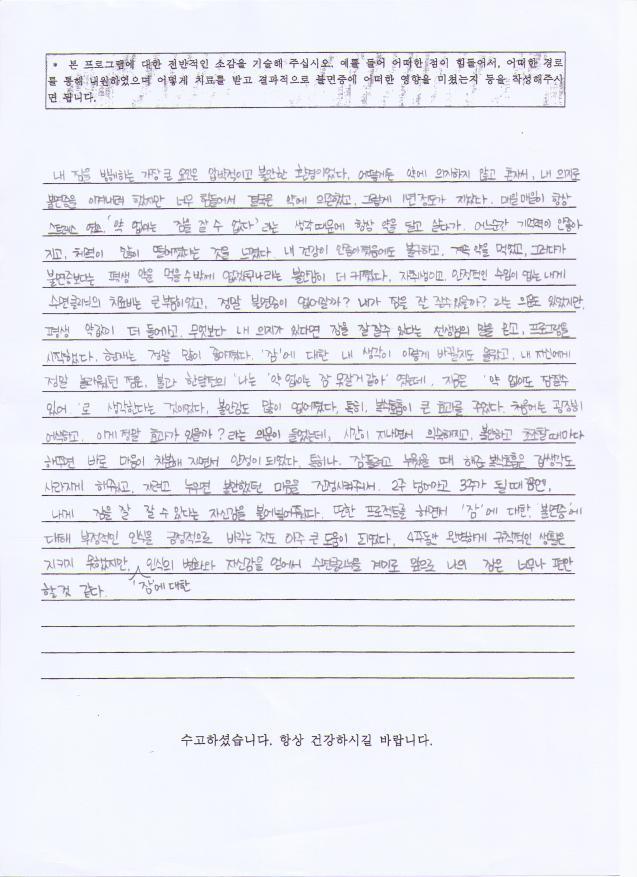 * 본 프로그램에 대한 전반적인 소감을 기술해 주십시오. 예를 들어 어떠한 점이 힘들어서, 어떠한 경로
를 통해 내원하였으며 어떻게 치료를 받고 결과적으로 불면증에 어떠한 영향을 미쳤는지 등을 작성해주시
면 됩니다.
내 잠을 방해하는 가장 큰 요인은 압박적이고 불안한 환경이었다. 어떻게든 약에 의지하지 않고 혼자서, 내 의지로
불면증을 이겨내려 했지만 너무 힘들어서 결국은 약에 의존했고, 그렇게 1년정도가 지났다. 매일매일이 항상
스트레스 였고, '약 없이는 잠을 잘 수 없다' 라는 생각 때문에 항상 약을 달고 살다가, 어느순간 기억력이 안좋아
지고, 체력이 많이 떨어졌다는 것을 느꼈다. 내 건강이 안좋아졌음에도 불구하고, 계속 약을 먹었고, 그러다가
불면증보다는 평생 약을 먹을수밖에 없겠구나라는 불안감이 더 커졌다. 자취생이고, 안정적인 수입이 없는 내게
수면클리닉의 치료비는 큰 부담이었고, 정말 불면증이 없어질까? 내가 잠을 잘 잘수있을까? 라는 의문도 있었지만,
평생 약값이 더 들어가고, 무엇보다 내 의지가 있다면 잠을 잘 잘수 있다는 선생님의 말을 듣고, 프로그램을
시작했다. 현재는 정말 많이 좋아졌다. '잠'에 대한 내 생각이 이렇게 바뀔지도 몰랐고, 내 자신에게
정말 놀라웠던 점은, 불과 한달전의 '나는' '약 없이는 잠 못잘거 같아' 였는데, 지금은 '약 없이도 잠잘수
있어' 로 생각한다는 것이었다. 불안감도 많이 없어졌다. 특히, 복식호흡이 큰 효과를 주었다. 처음에는 굉장히
어색하고, 이게 정말 효과가 있을까? 라는 의문이 들었는데, 시간이 지나면서 익숙해지고, 불안하고 초조할때마다
해주면 바로 마음이 차분해 지면서 안정이 되었다. 특히나, 잠들려고 누웠을 때 해준 복식호흡은 잡생각도
사라지게 해주었고, 자려고 누우면 불안했던 마음을 진정시켜주어서. 2주 넘어가고 3주가 될 때쯤엔,
내게 잠을 잘 잘 수 있다는 자신감을 불어넣어줬다. 또한 프로젝트를 하면서 '잠'에 대한, '불면증'에
대해 부정적인 인식을 긍정적으로 바꾸는 것도 아주 큰 도움이 되었다. 4주동안 완벽하게 규칙적인 생활은
지키지 못했지만, 인식의 변화와 자신감을 얻어서 수면클리닉을 계기로 앞으로 나의 잠은 너무나 편안
할 것 같다. '잠'에 대한
수고하셨습니다. 항상 건강하시길 바랍니다.